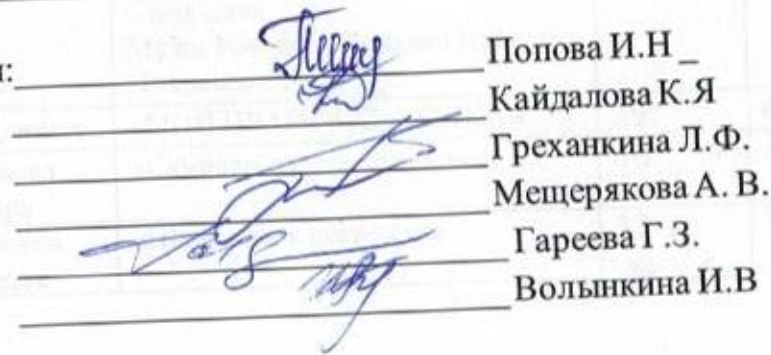 Попова И.Н _
Кайдалова К.Я
Греханкина Л.Ф.
Мещерякова А. В.
Гареева Г.З.
Волынкина И.В